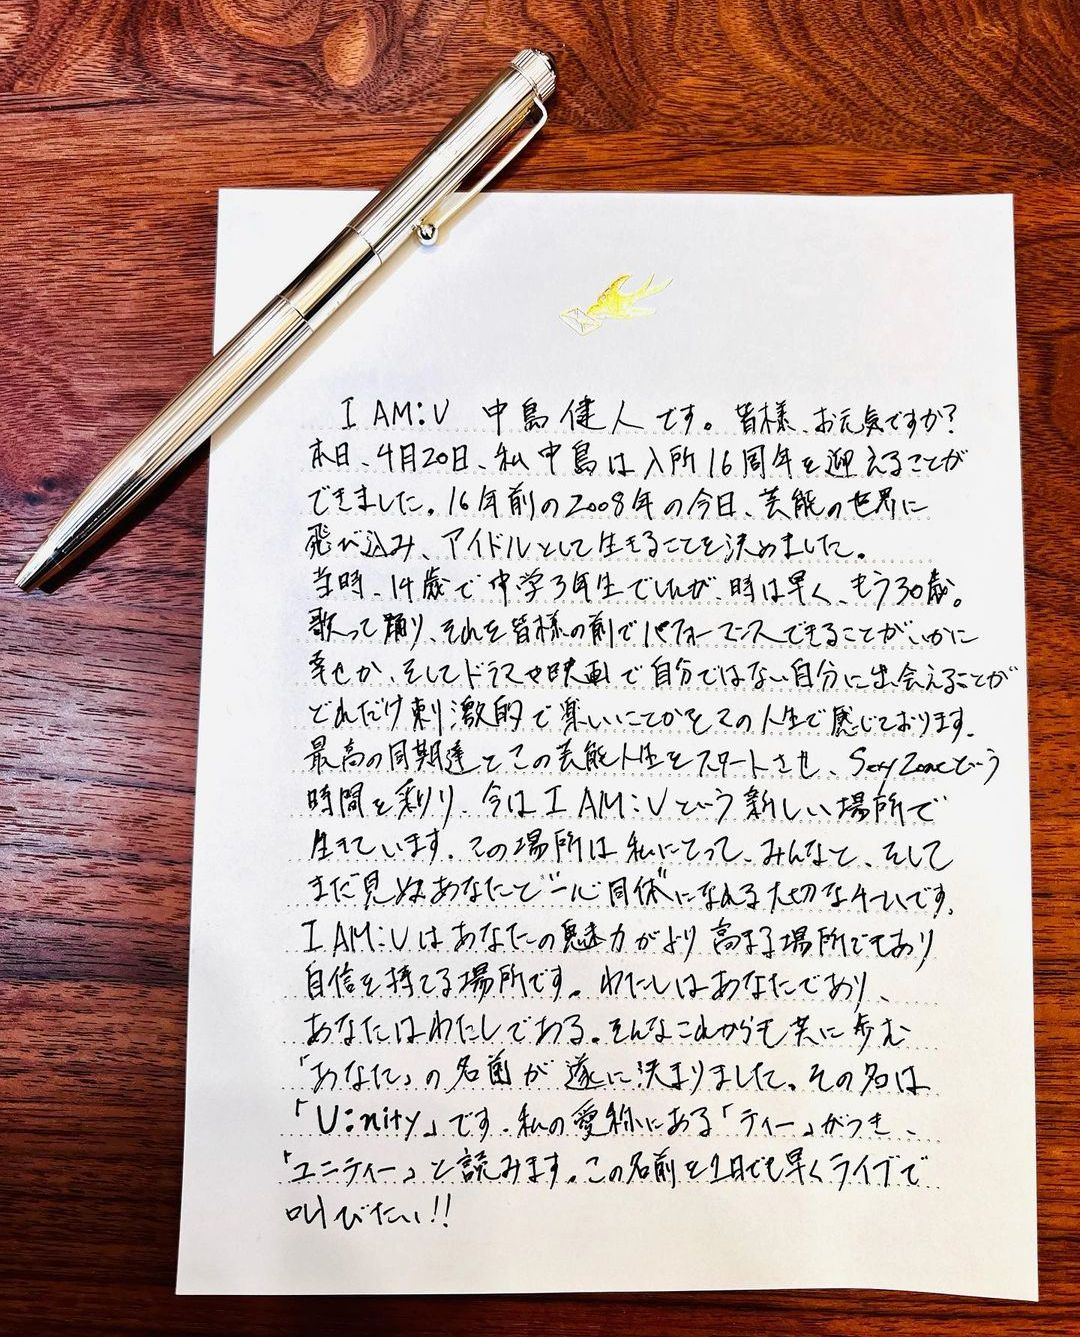 I AM:U 中島健人です。皆様、お元気ですか?
本日、4月20日、私中島は入所16周年を迎えることが
できました。16年前の2008年の今日、芸能の世界に
飛び込み、アイドルとして生きることを決めました。
当時、14歳で中学3年生でしたが、時は早く、もう30歳。
歌って踊り、それを皆様の前でパフォーマンスできることがいかに
幸せか、そしてドラマや映画で自分ではない自分に出会えることが
どれだけ刺激的で楽しいことかをこの人生で感じております。
最高の同期達とこの芸能人生をスタートさせ、Sexy Zoneという
時間を彩り、今はI AM:Uという新しい場所で
生きています。この場所は私にとって、みんなと、そして
まだ見ぬあなたと"一心同体"になれる大切なチームです。
I AM:Uはあなたの魅力がより高まる場所でもあり
自信を持てる場所です。わたしはあなたであり、
あなたはわたしである。そんなこれからも共に歩む
「あなた」の名前が遂に決まりました。その名は
「U:nity」です。私の愛称にある「ティー」がつき、
「ユニティー」と読みます。この名前を1日でも早くライブで
叫びたい!!